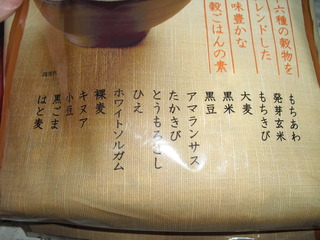 六種の穀物を
レンドした
味豊かな
穀ごはんの素
もちあわ
発芽玄米
もちきび
大麦
黒米
黒豆
アマランサス
たかきび
とうもろこし
ひえ
ホワイトソルガム
裸麦
キヌア
小豆
黒ごま
はと麦